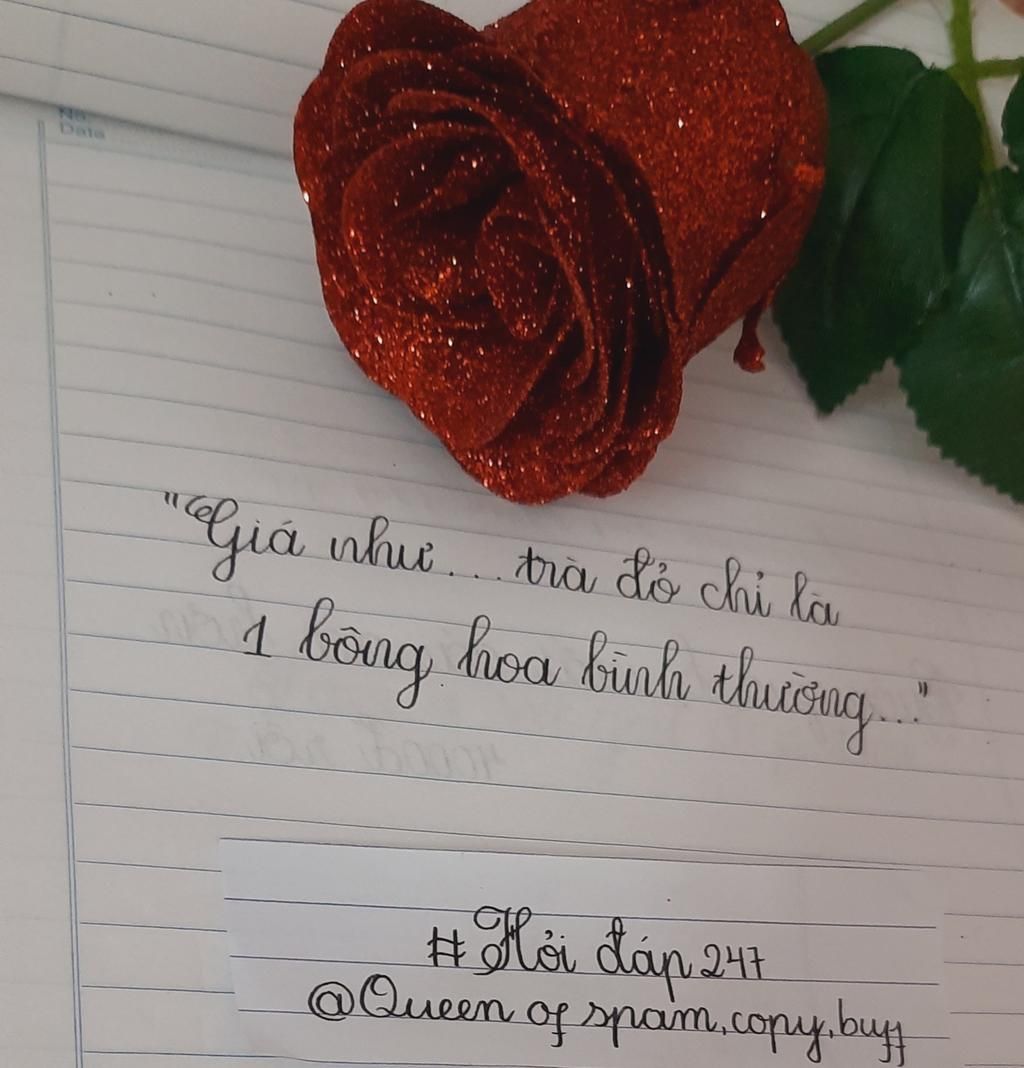 No.
Date
"Giá như... trà đỏ chỉ là
1 bông hoa bình thường..."
#Hỏi đáp 247
@Queen of spam,copy,buff